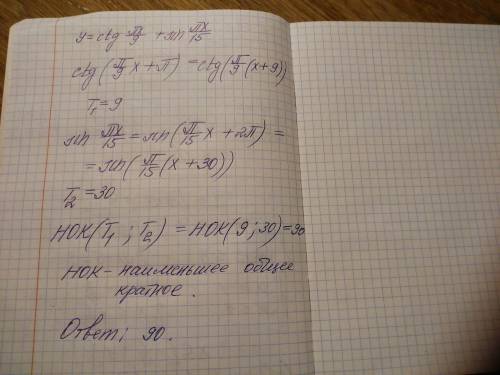 y = ctg πx/9 + sin πx/15
ctg(π/9 x + π) = ctg(π/9 (x+9))
T₁ = 9
sin πx/15 = sin(π/15 x + 2π) =
= sin(π/15 (x + 30))
T₂ = 30
НОК(T₁ ; T₂) = НОК(9 ; 30) = 90
НОК - наименьшее общее
кратное.
Ответ: 90.